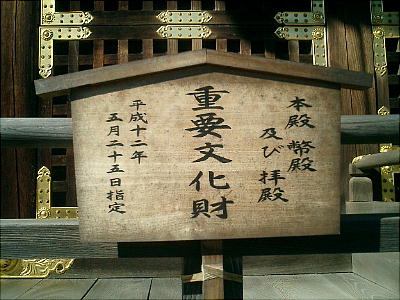 本殿 幣殿
及び 拝殿
重要文化財
平成十二年
五月二十五日指定